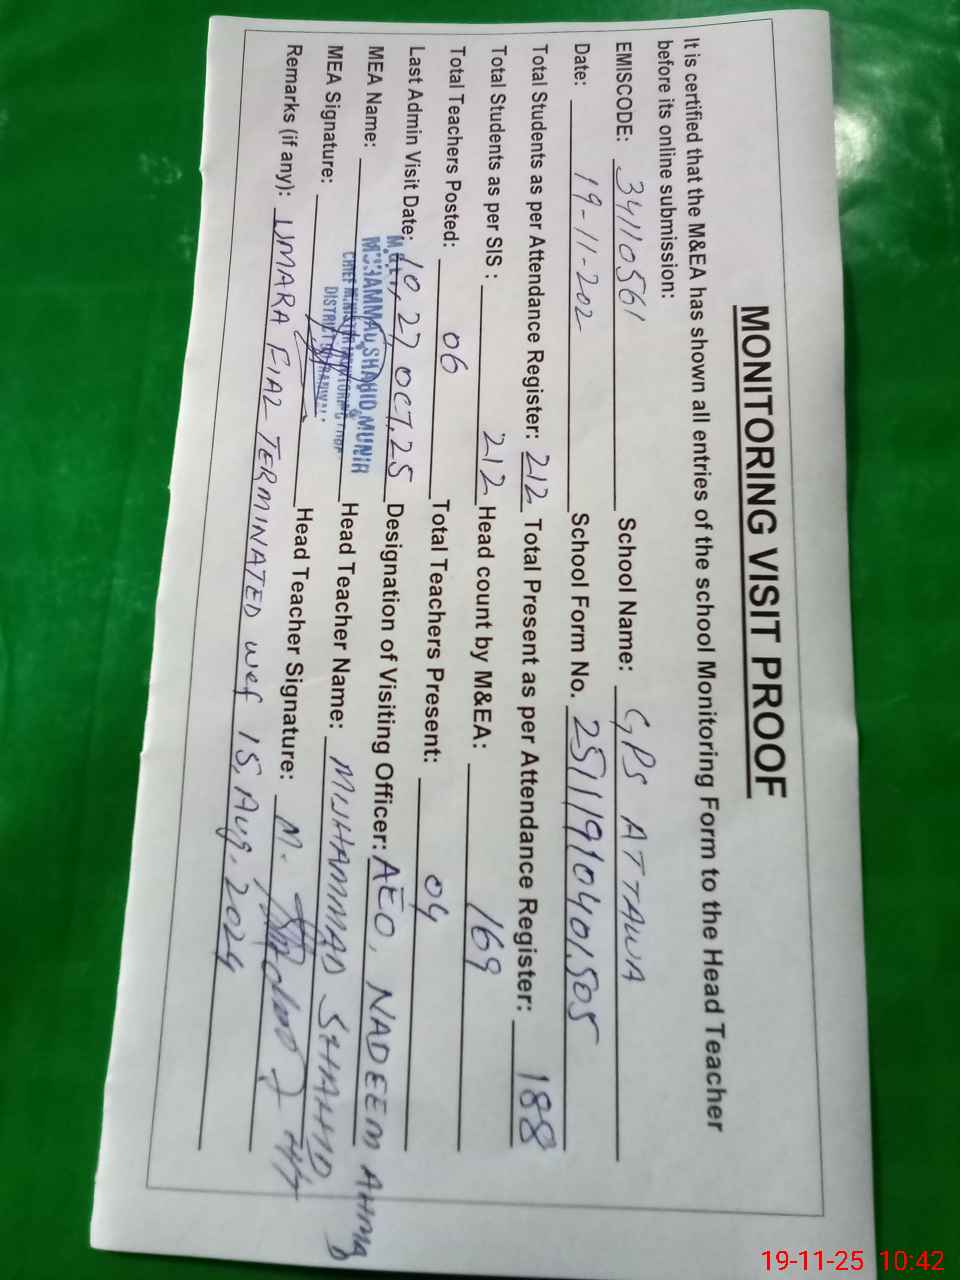 MONITORING VISIT PROOF
It is certified that the M&EA has shown all entries of the school Monitoring Form to the Head Teacher
before its online submission:
EMISCODE: 34110561 School Name: GPS ATTAWA
Date: 19-11-202 School Form No. 2511910401,505
Total Students as per Attendance Register: 212 Total Present as per Attendance Register: 188
Total Students as per SIS : 212 Head count by M&EA: 169
Total Teachers Posted: 06 Total Teachers Present: 04
Last Admin Visit Date: 10 27, OCT, 25 Designation of Visiting Officer: AEO, NADEEM AHMAD
MEA Name: MUHAMMAD SHAHID MUNIR Head Teacher Name: MUHAMMAD SHAHID
CHIEF MINISTER MONITORING
DISTRICT
MEA Signature: Head Teacher Signature: M.
Remarks (if any): UMARA FIAZ TERMINATED wef 15, Aug, 2024
19-11-25 10:42